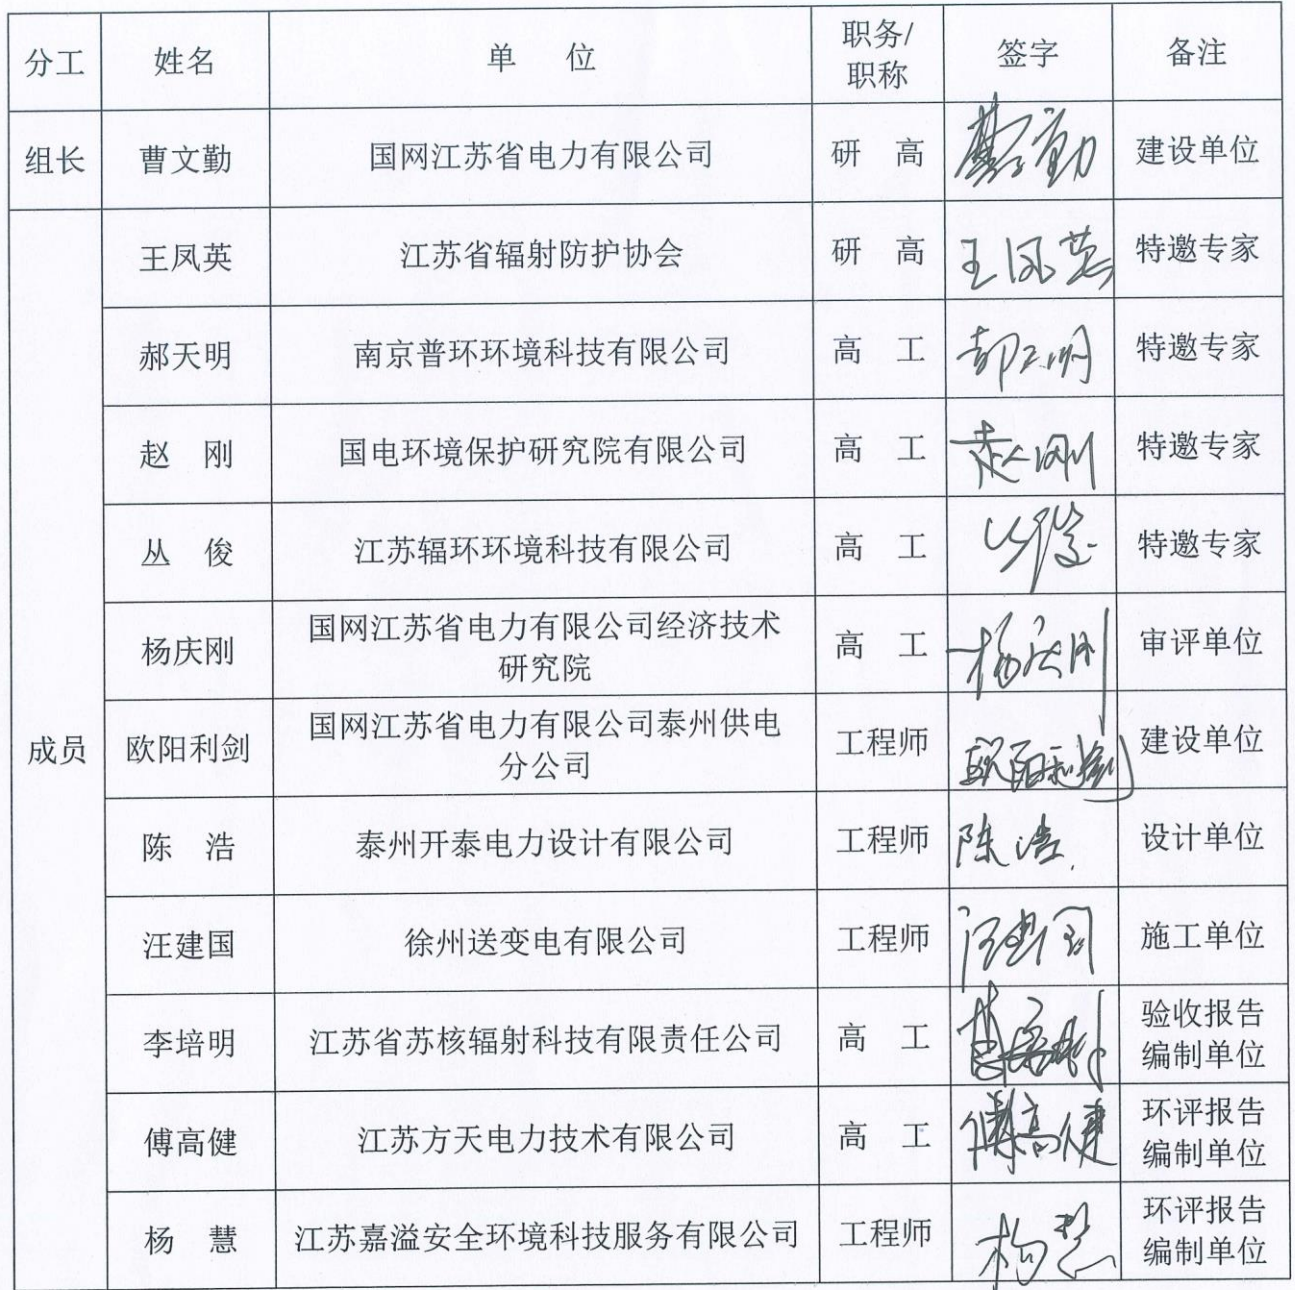 分工 姓名 单 位 职务/职称 签字 备注
组长 曹文勤 国网江苏省电力有限公司 研 高 建设单位
王凤英 江苏省辐射防护协会 研 高 王凤英 特邀专家
郝天明 南京普环环境科技有限公司 高 工 郝天明 特邀专家
赵 刚 国电环境保护研究院有限公司 高 工 赵刚 特邀专家
丛 俊 江苏辐环环境科技有限公司 高 工 丛俊 特邀专家
杨庆刚 国网江苏省电力有限公司经济技术研究院 高 工 杨庆刚 审评单位
成员 欧阳利剑 国网江苏省电力有限公司泰州供电分公司 工程师 欧阳利剑 建设单位
陈 浩 泰州开泰电力设计有限公司 工程师 陈浩 设计单位
汪建国 徐州送变电有限公司 工程师 汪建国 施工单位
李培明 江苏省苏核辐射科技有限责任公司 高 工 验收报告编制单位
傅高健 江苏方天电力技术有限公司 高 工 傅高健 环评报告编制单位
杨 慧 江苏嘉溢安全环境科技服务有限公司 工程师 杨慧 环评报告编制单位